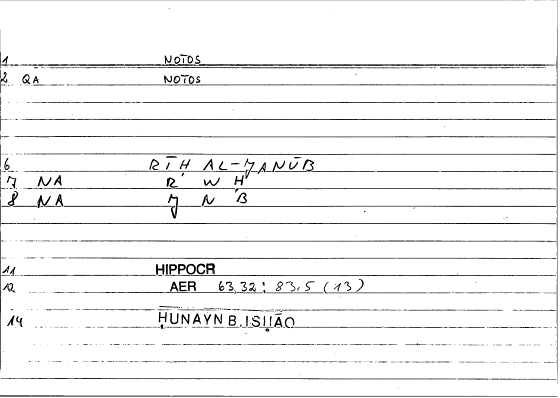 1 NOTOS
2 QA NOTOS
6 RĪḤ AL-JANŪB
7 NA R W Ḥ
8 NA J N B
11 HIPPOCR
12 AER 63,32: 83,5 (13)
14 ḤUNAYN B. ISḤĀQ